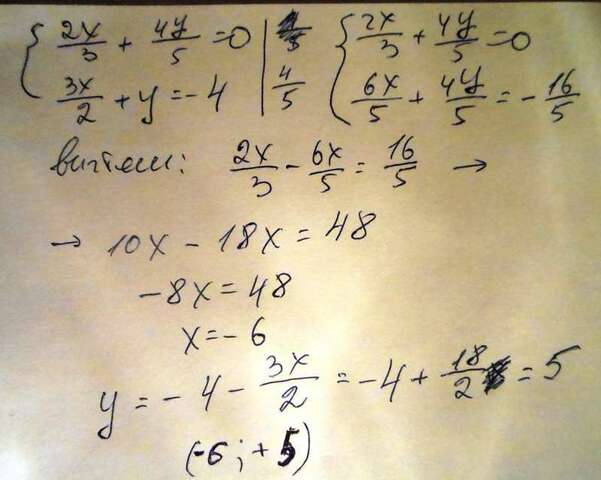 { 2x/3 + 4y/5 = 0 | { 2x/3 + 4y/5 = 0
3x/2 + y = -4 | 4/5 6x/5 + 4y/5 = -16/5
вычтем: 2x/3 - 6x/5 = 16/5 →
→ 10x - 18x = 48
-8x = 48
x = -6
y = -4 - 3x/2 = -4 + 18/2 = 5
(-6; +5)